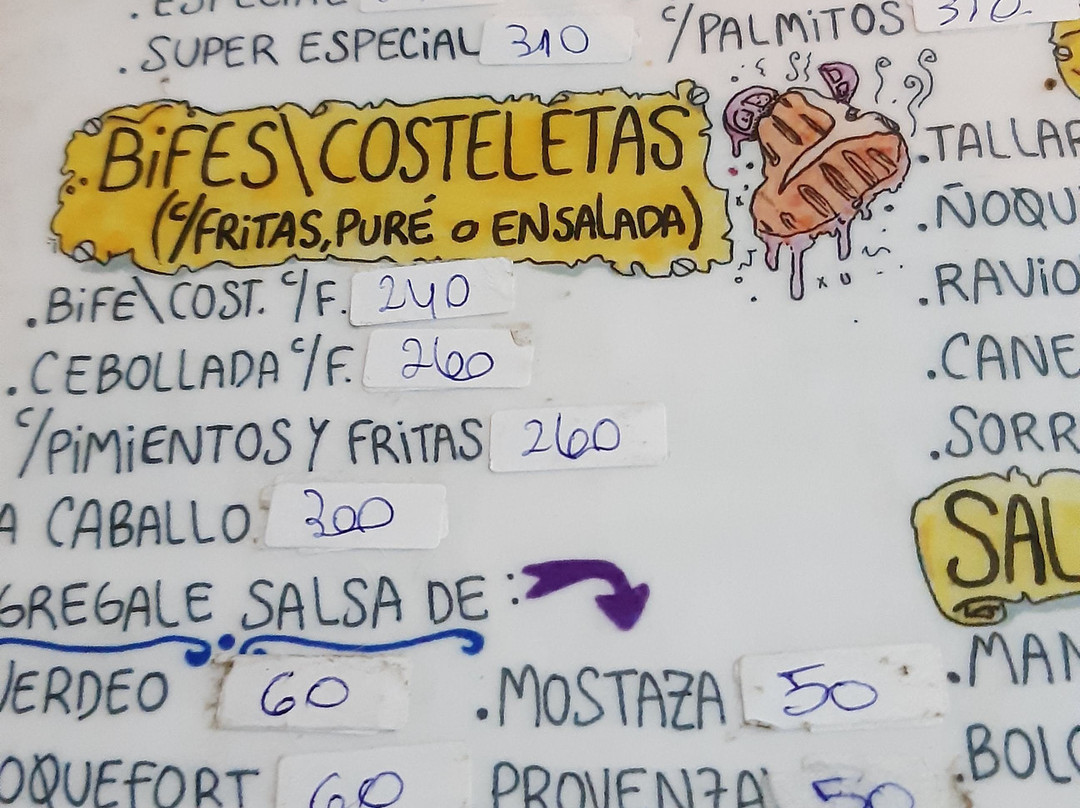 . ESPECIAL
. SUPER ESPECiAL 310
c/PALMiTOS 310
BiFES\COSTELETAS
(c/FRiTAS, PURÉ o ENSALADA)
. BiFE\COST. c/F. 240
. CEBOLLADA c/F. 260
c/PiMiENTOS Y FRiTAS 260
A CABALLO 300
GREGALE SALSA DE :
VERDEO 60
. MOSTAZA 50
OQUEFORT 60
PROVENZA 50
. TALLAR
. ÑOQU
. RAViO
. CANE
. SORR
SAL
. MAN
. BOLO